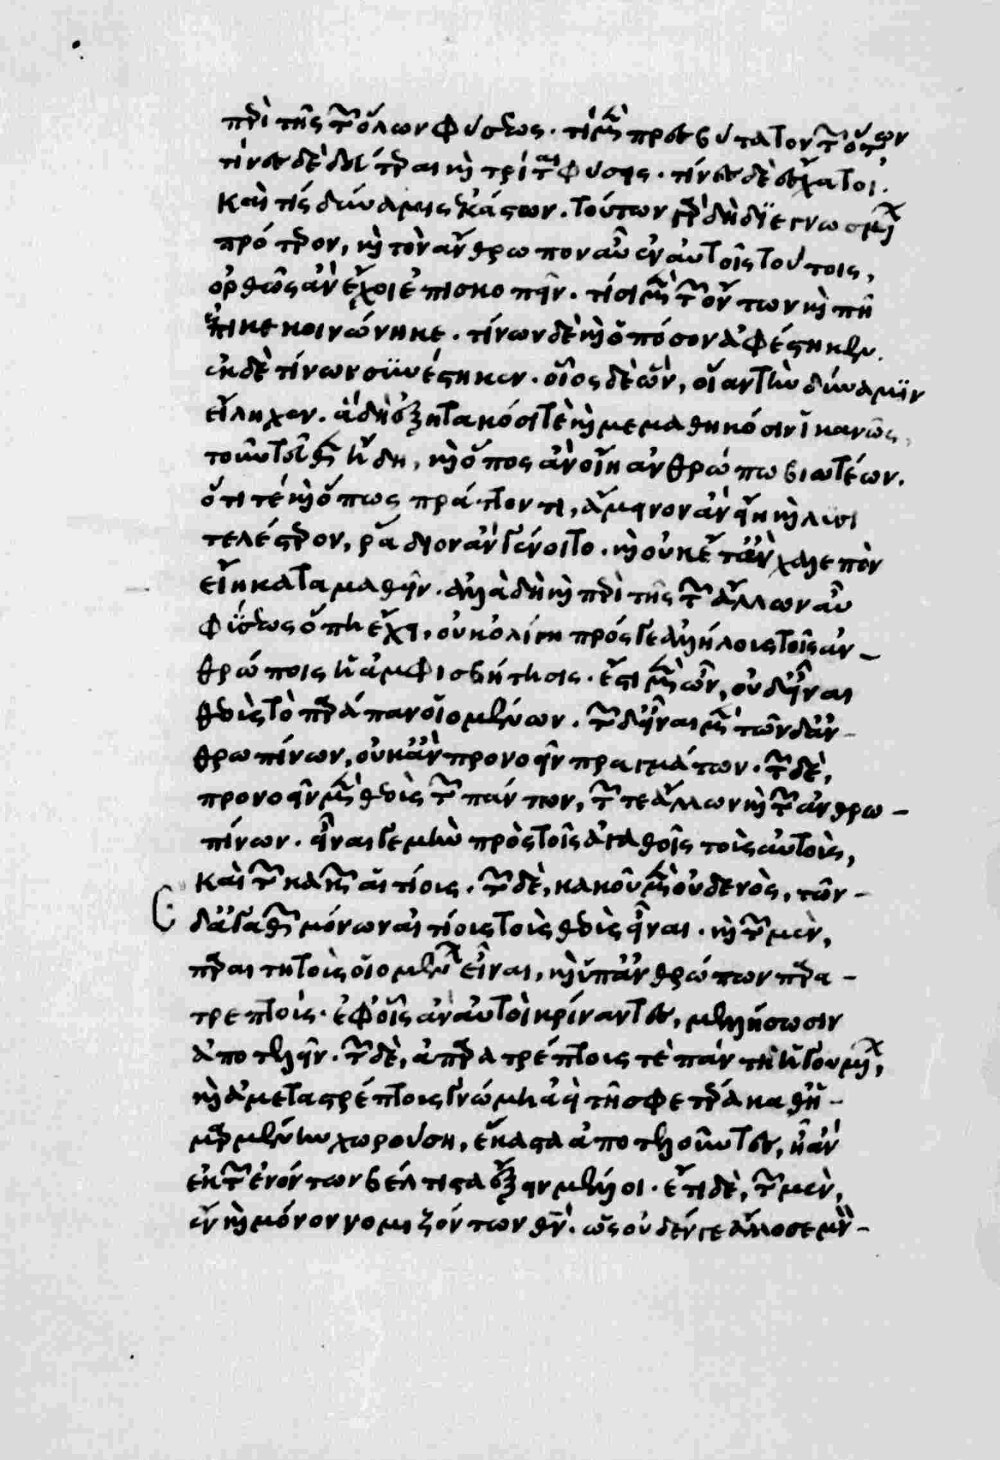 περὶ τῆς τῶν ὅλων φύσεως. τί μὲν πρεσβύτατον τῶν ὄντων
τίνες δὲ δεύτεραι καὶ τρίται φύσεις. τίνες δὲ ἔσχατοι.
καὶ τίς δύναμις ἑκάστων. τούτων γὰρ δὴ διεγνωσμένων
πρότερον, καὶ τὸν ἄνθρωπον αὖ ἐν αὐτοῖς τούτοις,
ὀρθῶς ἂν ἔχοι ἐπισκοπεῖν. τίσι μὲν τῶν ὄντων καὶ πῆ
κεκοινώνηκε. τίνων δὲ καὶ ὁπόσον ἀφέστηκεν.
ἐκ δὲ τίνων συνέστηκεν. οἷος δὲ ὢν, οἵαν τὴν δύναμιν
εἴληχεν. ἃ δὴ ἐξητακόσι τὲ καὶ μεμαθηκόσιν ἱκανῶς,
τοῦτ ἤδη, καὶ ὅπως ἂν οἵη ἀνθρώπω βιωτέων.
ὅτι τέ καὶ ὅπως πράττοντι, ἄμεινον ἂν εἴη καὶ λυσι
τελέστερον, ῥᾴδιον ἂν γένοιτο. καὶ οὐκέτ ἂν χαλεπὸν
εἴη καταμαθεῖν. ἀλλὰ δὴ καὶ περὶ τῆς τῶν ἄλλων αὖ
φύσεως ὅπη ἔχει, οὐκ ὀλίγη πρός γε ἀλλήλους τοῖς ἀν-
θρώποις ἡ ἀμφισβήτησις. ἔστι μὲν ὧν, οὐδ' εἶναι
θεοὺς τὸ παράπαν οἰομένων. τῶν δ' εἶναι μὲν, τῶν δ' ἀν-
θρωπίνων, οὐκ ἂν προνοεῖν πραγμάτων. τῶν δὲ,
προνοεῖν μὲν θεοὺς τῶν πάντων, τῶν τε ἄλλων καὶ τῶν ἀνθρω-
πίνων. εἶναι γε μὴν πρὸς τοῖς ἀγαθοῖς τοὺς αὐτοὺς,
καὶ τῶν κακῶν αἰτίους. τῶν δὲ, κακοῦ μὲν οὐδενὸς, τῶν-
δ' ἀγαθῶν μόνων αἰτίους τοὺς θεοὺς εἶναι. καὶ τῶν μὲν,
παραιτητοὺς οἰομένων εἶναι, καὶ ὑπ' ἀνθρώπων παρα-
τρεπτούς. ἐφ' οἷς ἂν αὐτοὶ κρίναντες, μελλήσωσιν
ἀποτελεῖν. τῶν δὲ, ἀπαρατρέπτους τὲ πάντη ἡγουμένων,
καὶ ἀμεταστρέπτους γνώμη ἀεὶ τῆ σφετέρα καθει-
μαρμένην χωρούση, ἕκαστα ἀποτελοῦντες, ἣ ἂν
ἐκ τῶν ἐνόντων βέλτιστα ἕξειν μέλλοι. ἔτι δὲ, τῶν μὲν,
ἓν καὶ μόνον νομιζόντων θεῖν. ὡς οὐδέν γε ἄλλο σεμν-